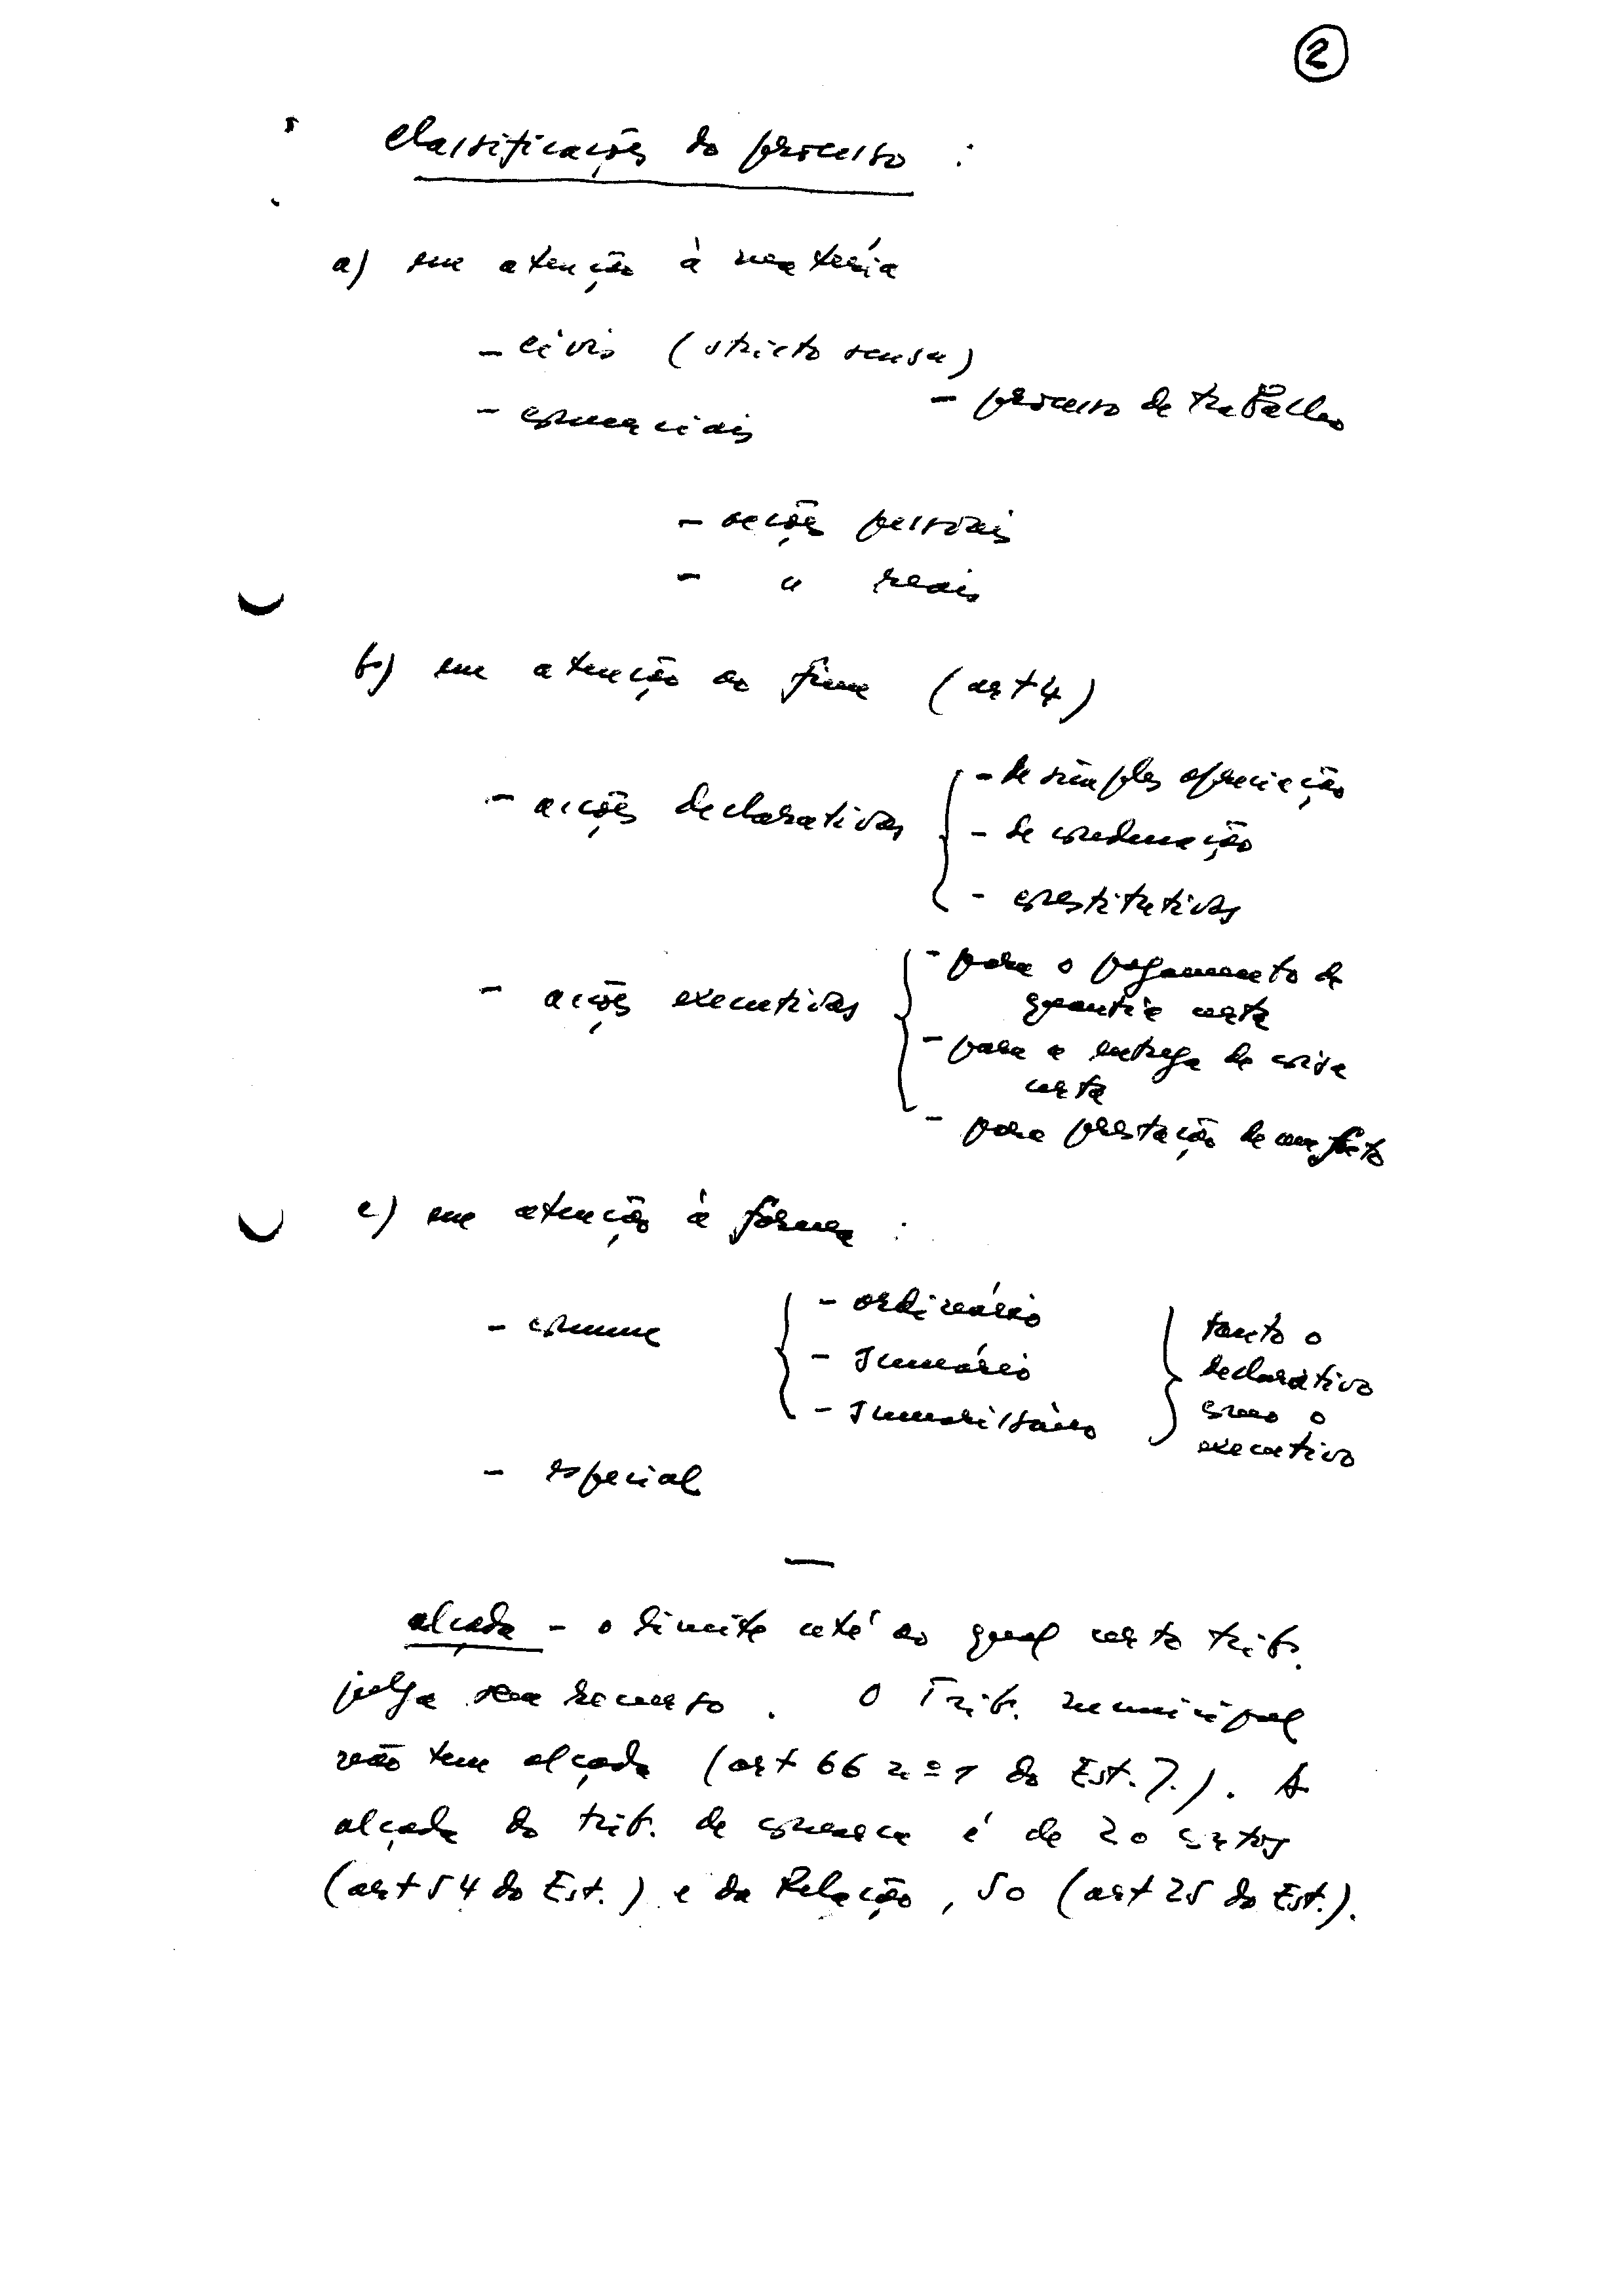 2
Classificações do processo :
a) em atenção à matéria
- civis (stricto sensu)
- processo de trabalho
- comerciais
- acções pessoais
- " reais
b) em atenção ao fim (art 4)
- acções declarativas
- de simples apreciação
- de condenação
- constitutivas
- acções executivas
- para o pagamento de
quantia certa
- para a entrega de coisa
certa
- para prestação de um facto
c) em atenção à forma :
- comum
- ordinário
- sumário
- sumaríssimo
tanto o
declarativo
como o
executivo
- especial
alçada - o limite até ao qual certo trib.
julga sem recurso. O Trib. municipal
não tem alçada (art 66 nº 1 do Est. J.). A
alçada do trib. de comarca é de 20 contos
(art 54 do Est.) e da Relação, 50 (art 25 do Est.).